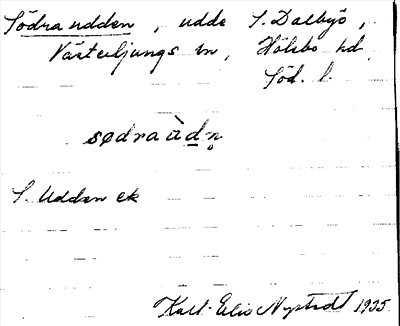 Södra udden, udde S. Dalbyö,
Västerljungs sn, Hölebo hd
Söd. l.
sødraùdn̥
S. Udden ek
Karl-Elis Nystedt 1935